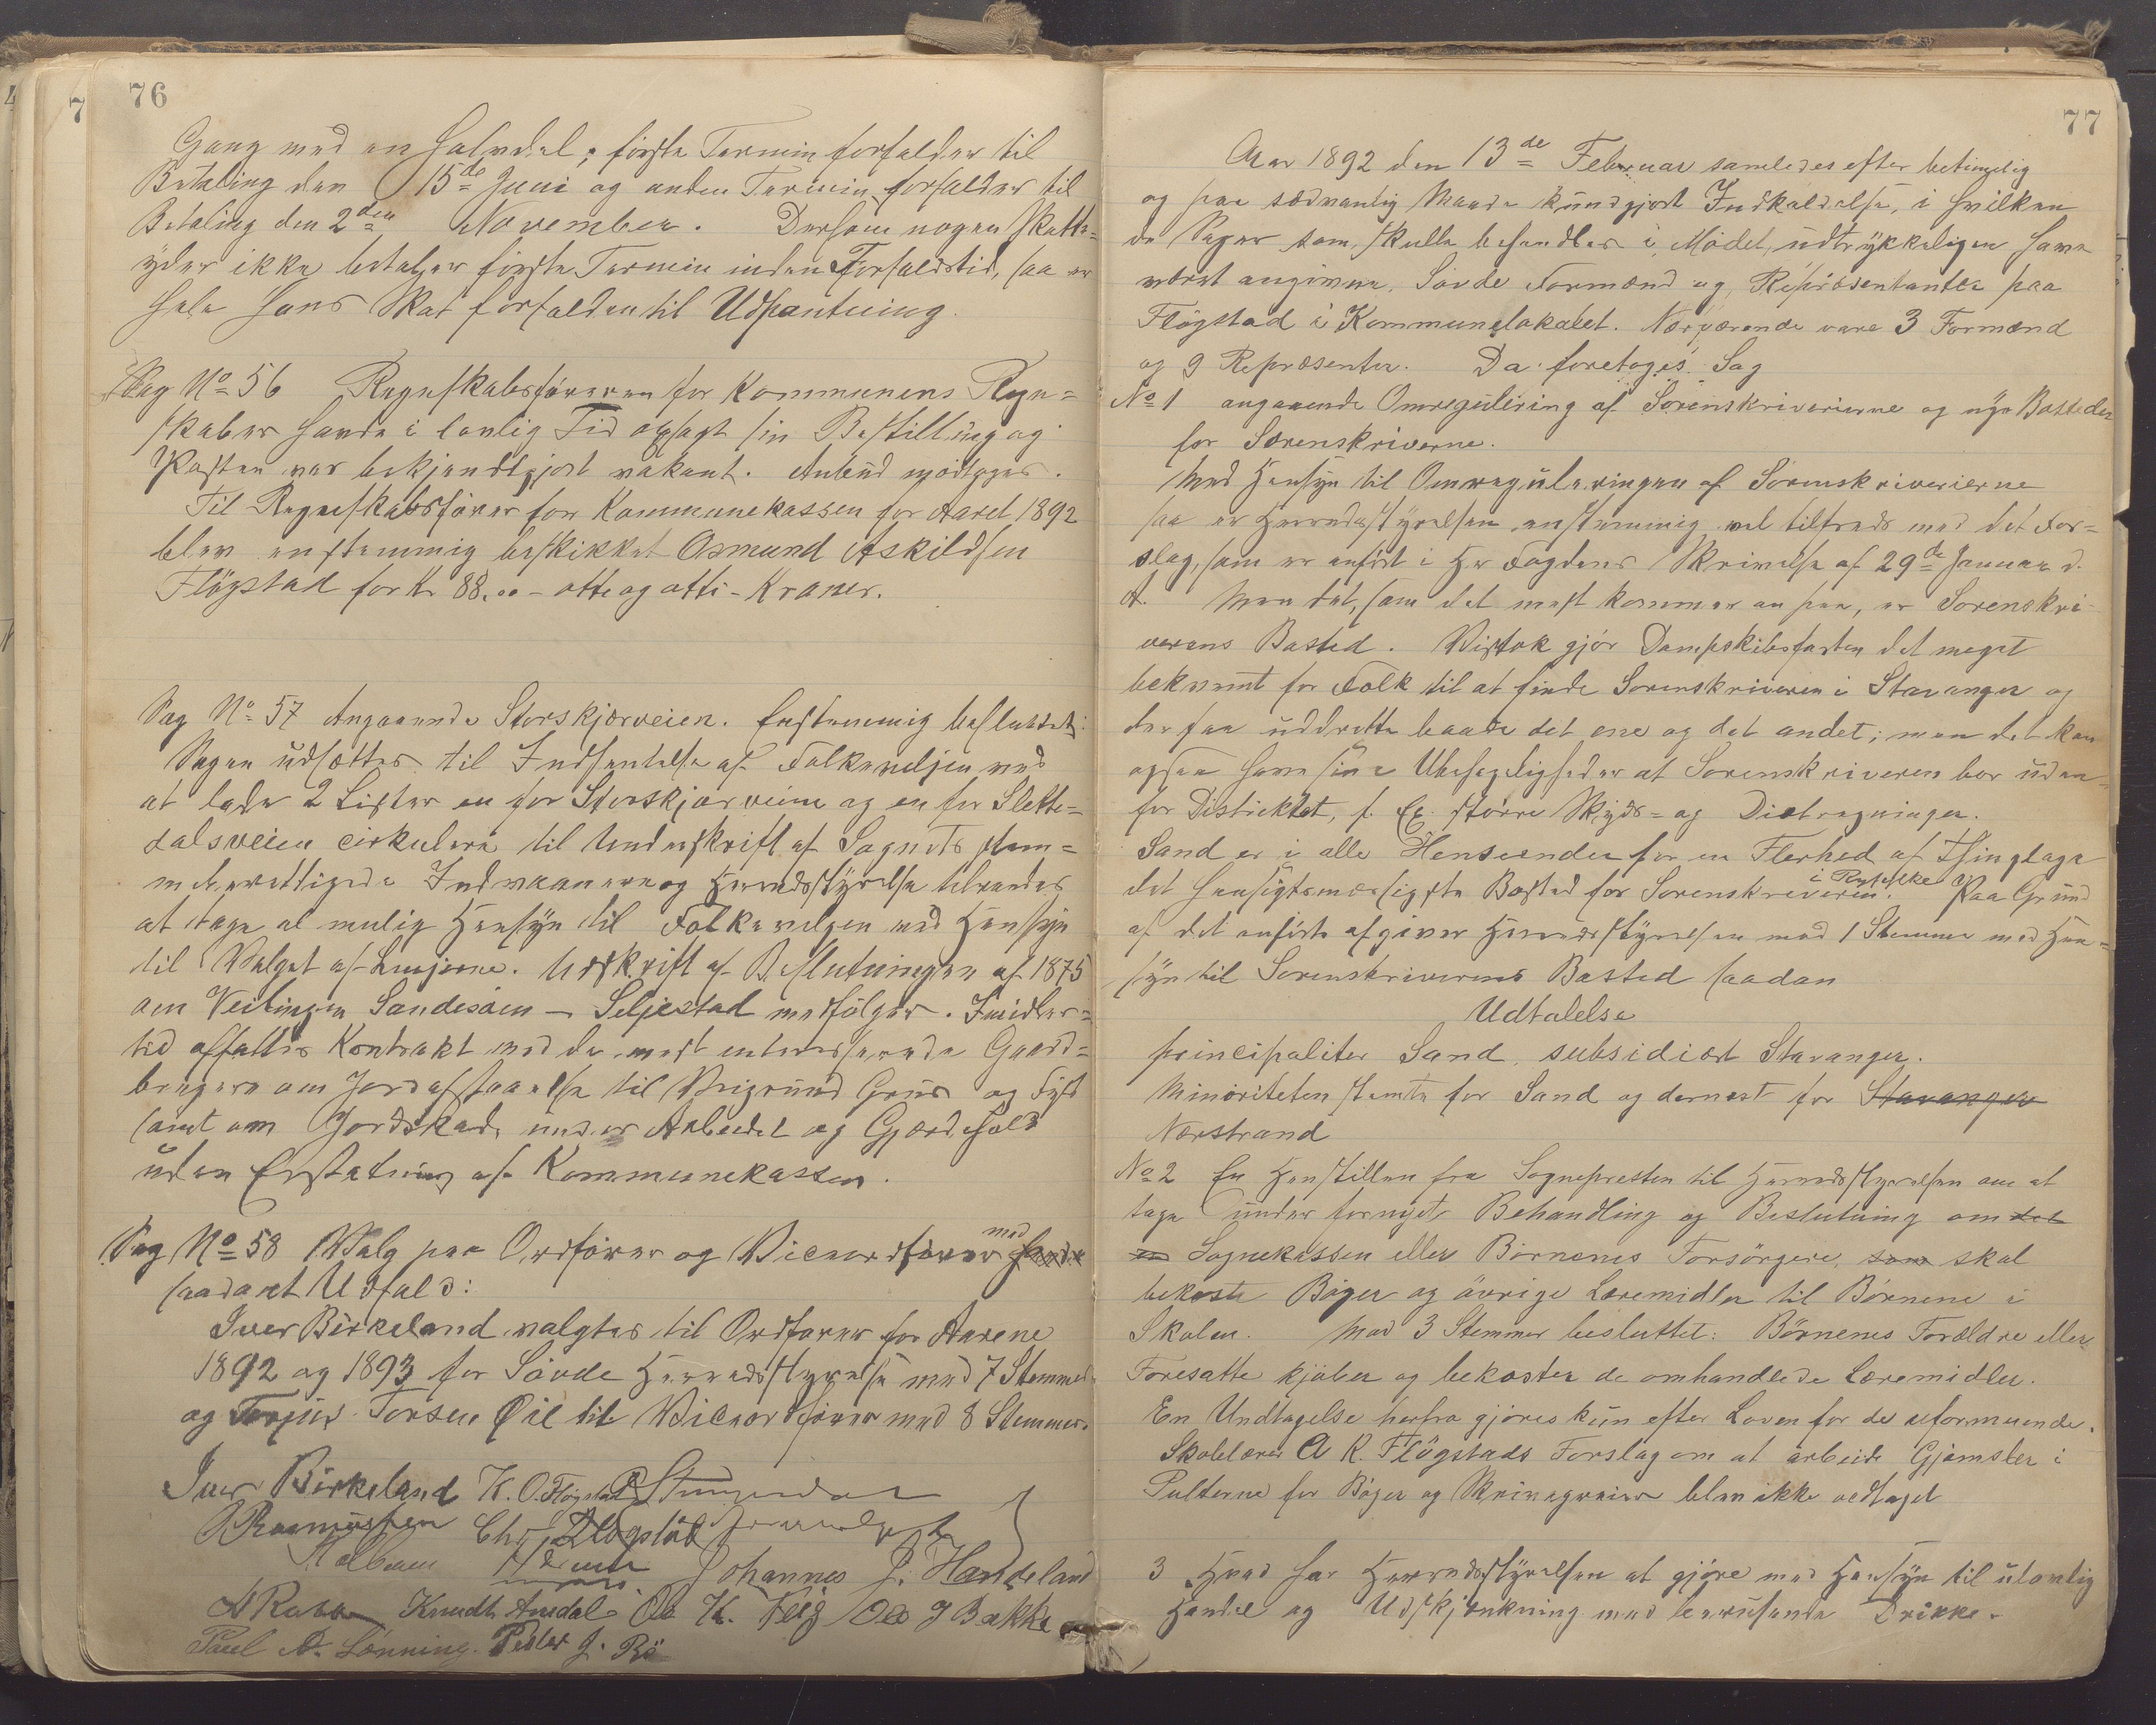 76
Gang med en Halvdel; første Termin forfalder til
Betaling den 15de Juni og anden Termin forfalder til
Betaling den 2den November. Dersom nogen Skatte=
yder ikke betaler første Termin inden Forfaldstid, saa er
hele hans Skat forfalden til Udpantning.
Sag No 56 Regnskabsføreren for Kommunens Regn=
skaber havde i lovlig Tid opsagt sin Bestilling og
Posten var bekjendtgjort vakant. Anbud modtoges.
Til Regnskabsfører for Kommunekassen for Aaret 1892
blev enstemmig beskikket Osmund Askildsen
Fløgstad for Kr 88,00 - otte og otti - Kroner.
Sag No 57 Angaaende Storskjærveien. Enstemmig besluttet:
Sagen udsættes til Indhentelse af Folkeviljen ved
at lade 2 Lister en for Storskjærveien og en for Slette=
dalsveien cirkulere til Underskrift af Sognets stem=
meberettigede Indvaanere og Herredsstyrelse tilraades
at tage al mulig Hensyn til Folkeviljen med Hensyn
til Valget af Linjerne. Udskrift af Beslutningen af 1875
om Veilinjen Sandesøen - Seljestad medfølger. Imidler=
tid affattes Kontrakt med de mest interesserede Gaard=
brugere om Jordafstaaelse til Veigrund Grus og Fyld
samt om Jordskade under Arbeidet og Gjærdehold
uden Erstatning af Kommunekassen.
Sag No 58 Valg paa Ordfører og Viceordfører med havde
saadant Udfald:
Iver Birkeland valgtes til Ordfører for Aarene
1892 og 1893 for Søvde Herredsstyrelse med 7 Stemmer
og Torjus Torsen Øie til Viceordfører med 8 Stemmer.
Iver Birkeland K. O. Fløgstad
R Rasmussen Chr. Fløgstad
Johannes J. Handeland
Knudt Amdal Ole K. Ole J Bakke
Paul A. Lønning. Peder J. Rø
77
Aar 1892 den 13de Februar samledes efter betimelig
og paa sædvanlig Maade kundgjort Indkaldelse, i hvilken
de Sager som skulle behandles i Mødet, udtrykkeligen have
været angivne, Søvde Formænd og Repræsentanter paa
Fløgstad i Kommunelokalet. Nærværende vare 3 Formænd
og 9 Repræsenter. Da foretoges Sag
No 1 angaaende Omregulering af Sorenskriverierne og nye Bosteder
for Sorenskriverne.
Med Hensyn til Omreguleringen af Sorenskriverierne
saa er Herredsstyrelsen enstemmig vel tilfreds med det For=
slag, som er anført i Hr Fogdens Skrivelse af 29de Januar d.
A. Men det, som det mest kommer an paa, er Sorenskri=
verens Bosted. Vistnok gjør Dampskibsfarten det meget
bekvemt for Folk til at finde Sorenskriveren i Stavanger og
der faa udrette baade det ene og det andet; men det kan
ogsaa have sine Ubehageligheder at Sorenskriveren bor uden=
for Distriktet, f. Ex. større Skyds= og Diætregninger.
Sand er i alle Henseender for en Flerhed af Thinglage
i Ryfylke
det hensigtsmæssigste Bosted for Sorenskriveren. Paa Grund
af det anførte afgiver Herredsstyrelsen mod 1 Stemme med Hen=
syn til Sorenskriverens Bosted saadan
Udtalelse
principaliter Sand, subsidiært Stavanger.
Minoriteten stemte for Sand og dernæst for Stavanger
Nærstrand
No 2 En Henstillen fra Sognepresten til Herredsstyrelsen om at
tage under fornyet Behandling og Beslutning om det
en Sognekassen eller Børnenes Forsørgere, som skal
bekoste Bøger og øvrige Læremidler til Børnene i
Skolen. Mod 3 Stemmer besluttet: Børnenes Forældre eller
Foresatte kjøber og bekoster de omhandlede Læremidler.
En Undtagelse herfra gjøres kun efter Loven for de uformuende.
Skolelærer A K. Fløgstads Forslag om at arbeide Gjemsler i
Pulterne for Bøger og Skrivegreier blev ikke vedtaget
3 Hvad har Herredsstyrelsen at gjøre med Hensyn til ulovlig
Handel og Udskjænkning med berusende Drikke.